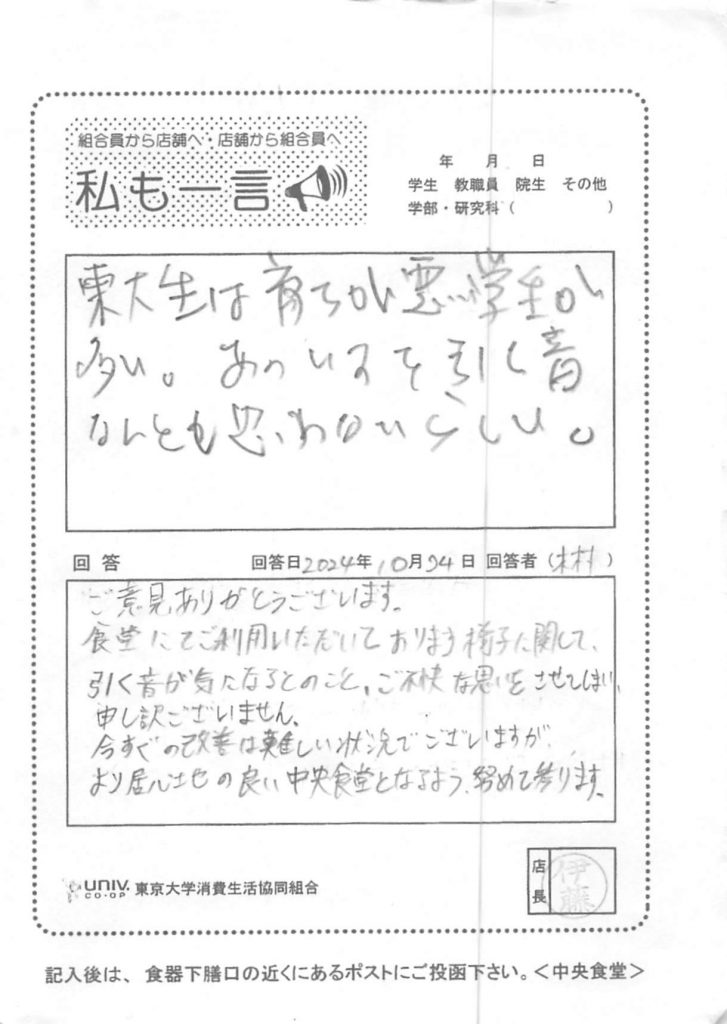 組合員から店舗へ・店舗から組合員へ
私も一言
年 月 日
学生 教職員 院生 その他
学部・研究科（ ）
東大生は育ちが悪い学生が
多い。あのいすを引く音
なんとも思わないらしい。
回答 回答日2024年10月24日 回答者（木村）
ご意見ありがとうございます。
食堂にてご利用いただいております椅子に関して、
引く音が気になるとのこと、ご不快な思いをさせてしまい、
申し訳ございません。
今すぐの改善は難しい状況でございますが、
より居心地の良い中央食堂となるよう、努めて参ります。
UNIV. CO-OP 東京大学消費生活協同組合
店長 伊藤
記入後は、食器下膳口の近くにあるポストにご投函下さい。＜中央食堂＞